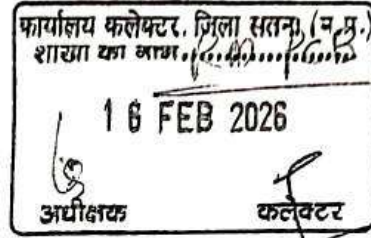 कार्यालय कलेक्टर, जिला सतना, (म.प्र.)
शाखा का नाम
16 FEB 2026
अधीक्षक
कलेक्टर